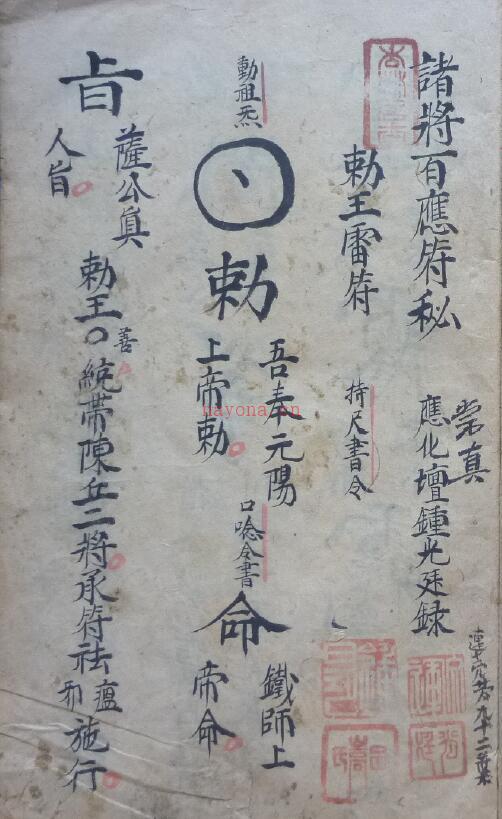 諸將百應符秘
崇真
應化壇鍾光廷録
勅王雷符
持尺書令
勅祖炁
勅
吾奉元陽
上帝勅
口唸令書
命
鐵師上
帝命
上旨
薩公真
人旨
勅王善○統帶陳丘二將承符祛瘟邪施行
nayona.cn